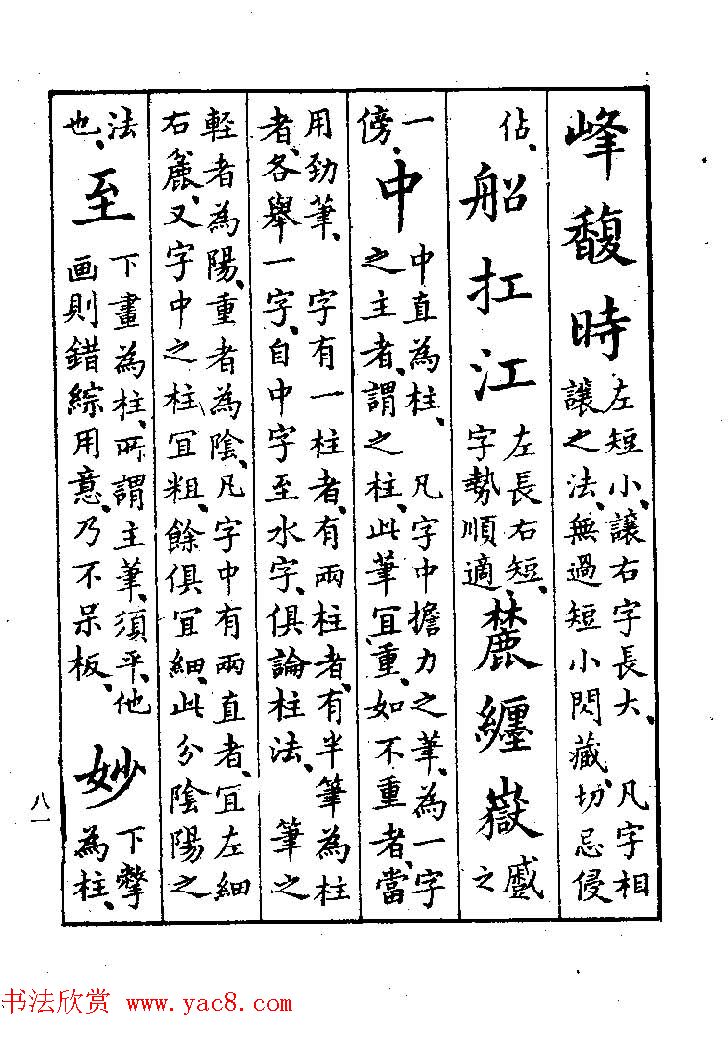 峰馥時
左短小、讓右字長大、 凡字相
讓之法、無過短小閃藏、切忌侵
佔、
船扛江
左長右短、
字勢順適、
麓纏嶽
之
一
傍、
中
中直為柱、 凡字中擔力之筆、為一字
之主者、謂之柱、此筆宜重、如不重者、當
用劲筆、 字有一柱者、有兩柱者、有半筆為柱
者、各舉一字、自中字至水字、俱論柱法、 筆之
輕者為陽、重者為陰、凡字中有兩直者、宜左細
右麄、又字中之柱宜粗、餘俱宜細、此分陰陽之
法
也、
至
下畫為柱、所謂主筆、須平、他
画則錯綜用意、乃不呆板、
妙
下撆
為柱、
八一
书法欣赏 www.yac8.com